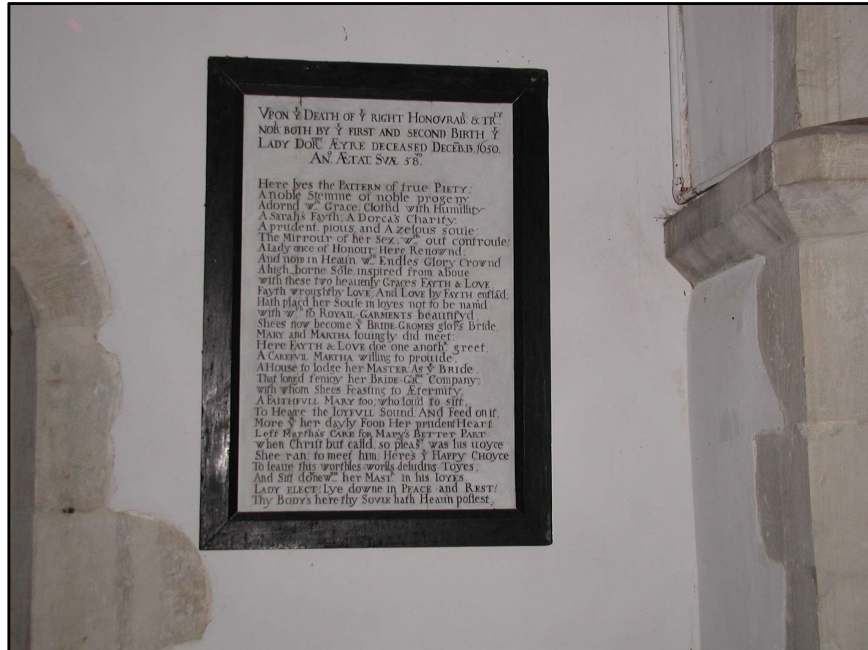 VPON Yᴱ DEATH OF Yᴱ RIGHT HONOVRAB. & TRᵛᴸʸ
NOB. BOTH BY Yᴱ FIRST AND SECOND BIRTH Yᴱ
LADY DOR. ÆYRE DECEASED DECEB. 13. 1650.
ANº. ÆTAT. SVÆ 58.
Here lyes the PATTERN of true PIETY;
A noble Stemme of noble progeny
Adornd wᵗʰ Grace; Clothd with Humillity
A Sarah's Fayth; A Dorca's Charity.
A prudent, pious, and A zelous soule;
The Mirrour of her Sex, wᵗʰ out controule;
A Lady once of Honour Here Renownd;
And now in Heaun wᵗʰ Endles Glory Crownd
A high borne Sole, inspired from aboue
with these two heauenly Graces FAYTH & LOVE
FAYTH wrought by LOVE; And LOVE by FAYTH enflad;
Hath placd her Soule in Ioyes not to be namd
with wᶜʰ to ROYALL GARMENTS beautifyd
Shees now become Yᴱ BRIDE-GROMES glorˢ Bride
MARY and MARTHA louingly did meet;
Here FAYTH & LOVE doe one anothʳ greet.
A CAREFVLL MARTHA willing to prouide
A House to lodge her MASTER As Yᴱ BRIDE
That longd t'enioy her BRIDE-Gʳᵒᵐˢ Company;
with whom Shees Feasting to Æternity.
A FAITHFVLL MARY too, who loud to sitt,
To Heare the IOYFVLL Sound, And Feed on it,
More yⁿ her dayly FOOD Her prudent Heart
Left Martha's CARE for MARY's BETTER PART
when Christ but calld, so pleasᵗ was his uoyce
Shee ran to meet him; Here's Yᴱ HAPPY CHOYCE
To leaue this worthles worlds deluding TOYES,
And Sitt downe wᵗʰ her MASTʳ in his IOYES
LADY ELECT! Lye downe in PEACE and REST!
Thy BODY's here thy SOVLE hath Heaun possest.